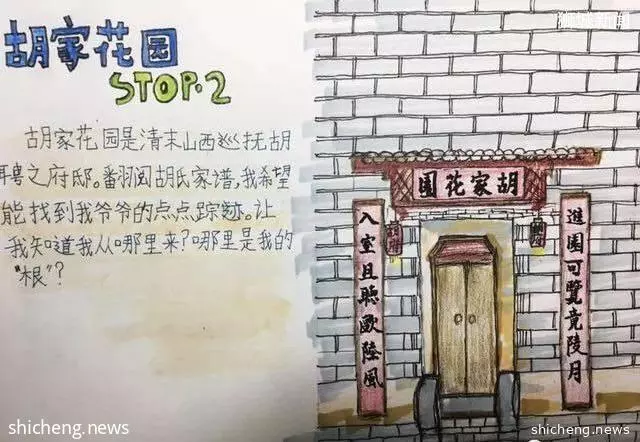 狮城新闻
胡家花园
STOP.2
胡家花园是清末山西巡抚胡
聘之府邸。翻阅胡氏家谱,我希望
能找到我爷爷的点点踪迹。让
我知道我从哪里来?哪里是我的
"根"?
胡家花園
進園可覽竟陵月
入室且聽歐陸風
shicheng.news
shicheng.news